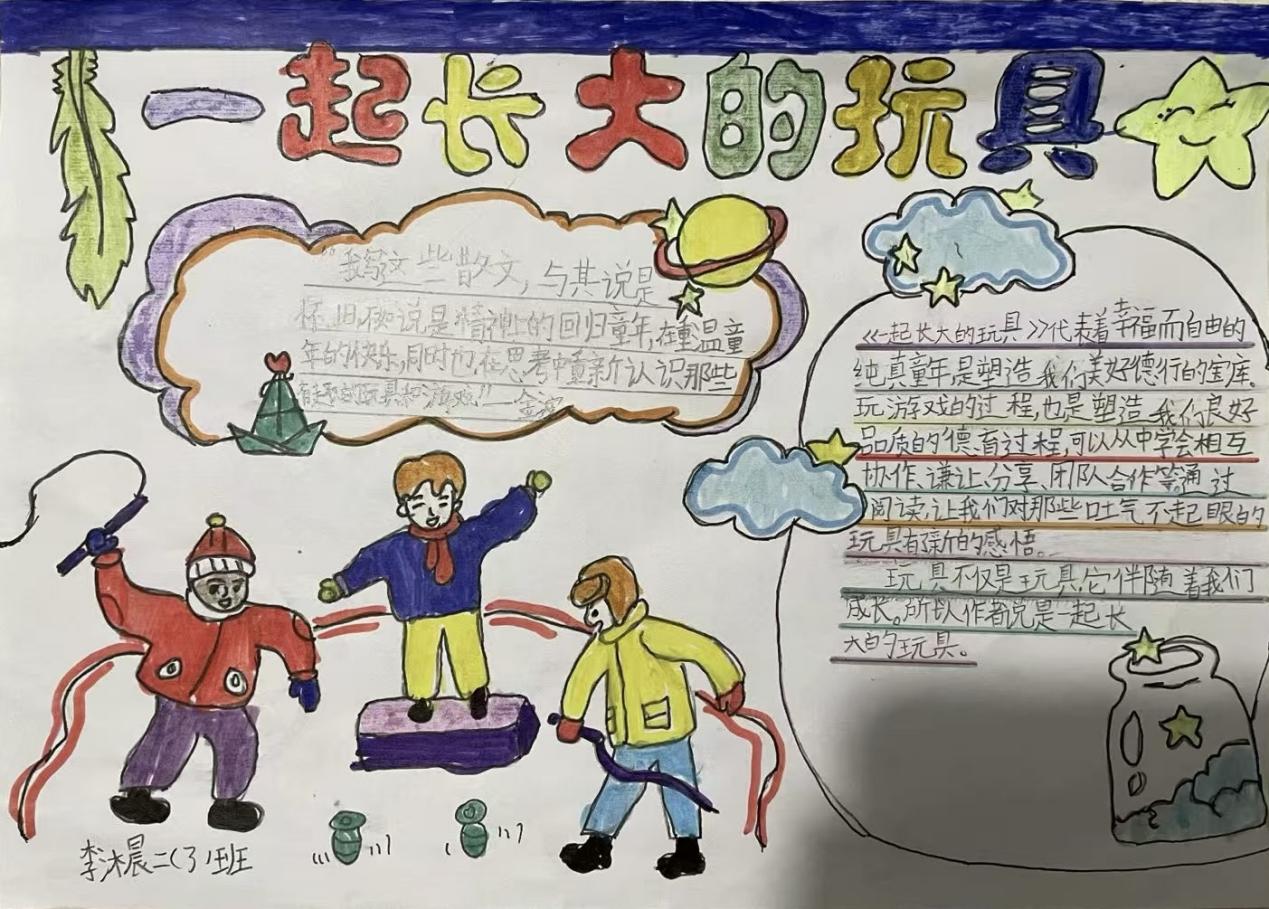 一起长大的玩具
"我写这些散文,与其说是
怀旧,不如说是精神上的回归童年,在重温童
年的快乐,同时也在思考中重新认识那些
有趣的玩具和游戏!"——金波
《一起长大的玩具》代表着幸福而自由的
纯真童年,是塑造我们美好德行的宝库。
玩游戏的过程,也是塑造我们良好
品质的德育过程,可以从中学会相互
协作、谦让、分享、团队合作等。通过
阅读,让我们对那些土气不起眼的
玩具有新的感悟。
玩具不仅是玩具,它伴随着我们
成长。所以作者说是一起长
大的玩具。
李沐晨二(3)班